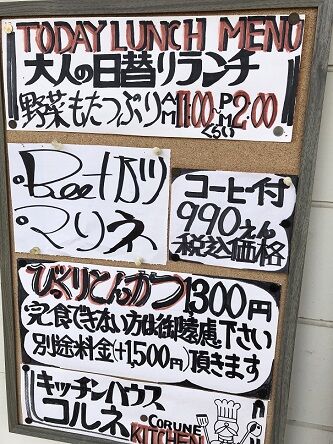 TODAY LUNCH MENU
大人の日替りランチ
野菜もたっぷりAM11:00~PM2:00
くらい
Beefカツ
マリネ
コーヒー付
990えん
税込価格
びっくりとんかつ1300円
完食できない方は御遠慮下さい
別途料金(+1,500円)頂きます
キッチンハウス
コルネ CORUNE
KITCHEN